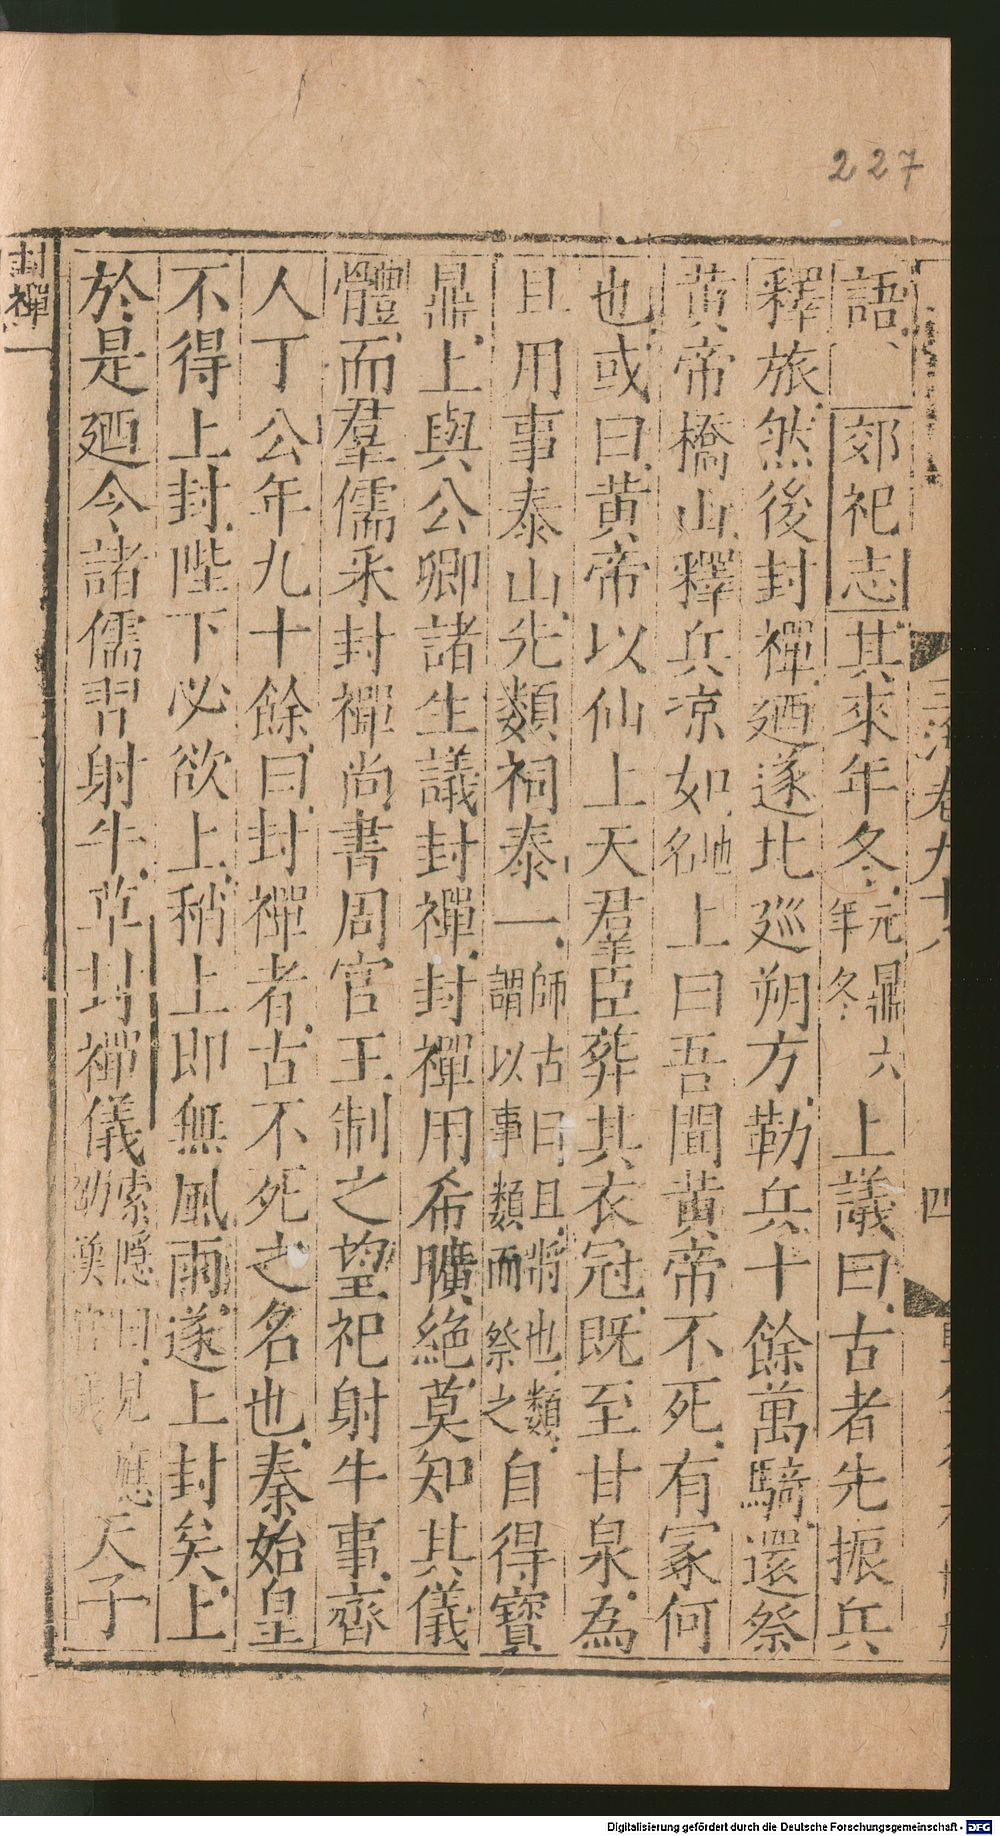 227
語、郊祀志其來年冬元鼎六年冬上議曰古者先振兵
釋旅然後封禪廼遂北廵朔方勒兵十餘萬騎還祭
黃帝橋山釋兵凉如地名上曰吾聞黃帝不死有冢何
也或曰黃帝以仙上天羣臣葬其衣冠既至甘泉為
且用事泰山先類祠泰一師古曰且將也類謂以事類而祭之自得寶
鼎上與公卿諸生議封禪封禪用希曠絶莫知其儀
體而羣儒釆封禪尚書周官王制之望祀射牛事齊
人丁公年九十餘曰封禪者古不死之名也秦始皇
不得上封陛下必欲上稍上即無風雨遂上封矣上
於是廼令諸儒習射牛草封禪儀索隱曰見應劭漢官儀天子
封禪
卷九十八
四
Digitalisierung gefördert durch die Deutsche Forschungsgemeinschaft - DFG